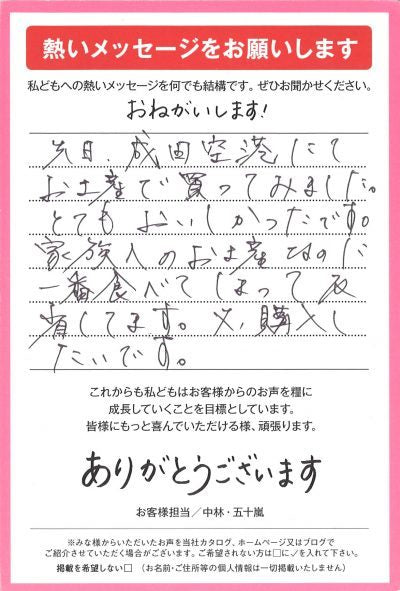 熱いメッセージをお願いします
私どもへの熱いメッセージを何でも結構です。ぜひお聞かせください。
おねがいします!
先日、成田空港にて
お土産で買ってみました。
とてもおいしかったです。
家族へのお土産なのに
一番食べてしまって反
省してます。又、購入し
たいです。
これからも私どもはお客様からのお声を糧に
成長していくことを目標としています。
皆様にもっと喜んでいただける様、頑張ります。
ありがとうございます
お客様担当/中林・五十嵐
※みな様からいただいたお声を当社カタログ、ホームページ又はブログで
ご紹介させていただく場合がございます。ご希望されない方は□に✓を入れて下さい。
掲載を希望しない□ (お名前・ご住所等の個人情報は一切掲載いたしません)